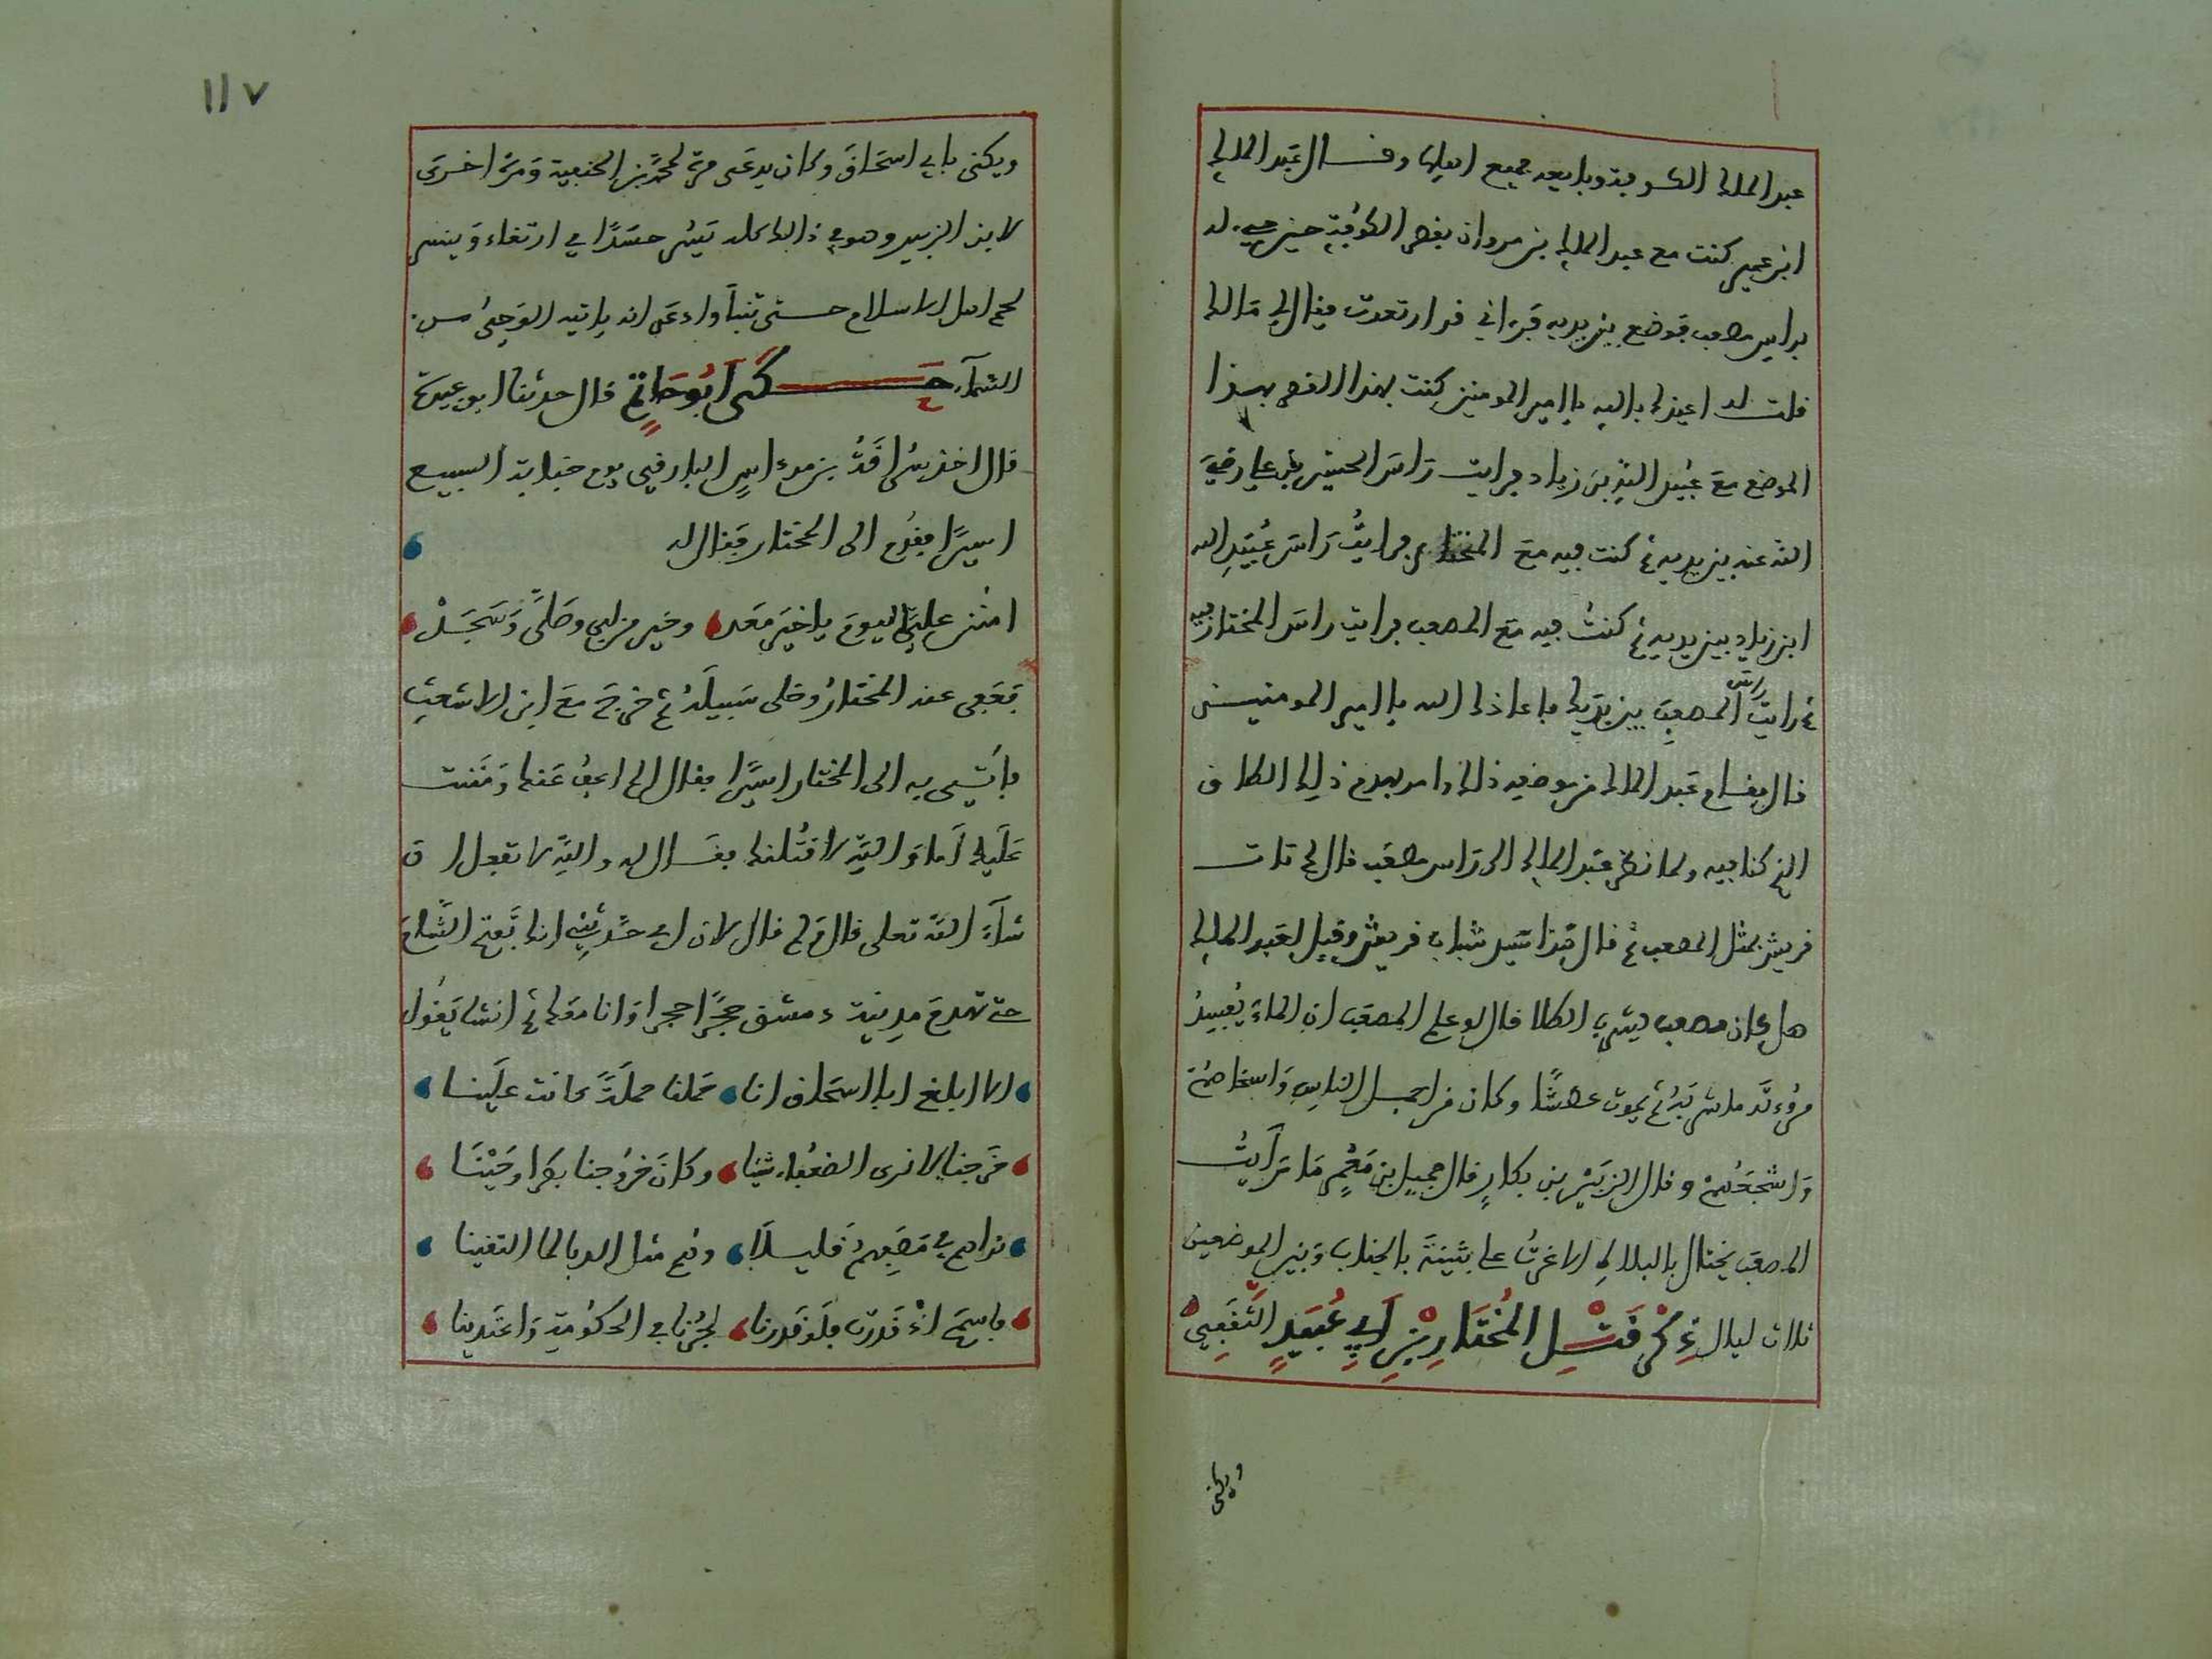 عبد الملك الكوفة وبايعه جميع اهلها وقال عبد الملك
ابن عمير كنت مع عبد الملك بن مروان بقصر الكوفة حين جيء له
براس مصعب فوضع بين يديه فرءاني قد ارتعدت فقال لي مالك
فلت له اعيذك بالله يا امير المومنين كنت بهذا القصر بهذا
الموضع مع عبيد الله بن زياد فرايت راس الحسين بن علي رضي
الله عنه بين يديه ثم كنت فيه مع المختار فرايت راس عبيد الله
ابن زياد بين يديه ثم كنت فيه مع المصعب فرايت راس المختار فيه
ثم رايت راس المصعب بين يديك فاعاذك الله يا امير المومنين
قال فقام عبد الملك من موضعه ذلك وامر بهدم ذلك الطاق
الذي كنا فيه ولما نظر عبد الملك الى راس مصعب قال
قريش بمثل المصعب ثم قال هذا سيد شباب قريش وقيل لعبد الملك
هل كان مصعب يشرب الطلا قال لو علم المصعب ان الماء يفسد
مروءته ما شربه ثم يموت عطشا وكان من اجمل الناس واسخاهم
واشجعهم وقال الزبير بن بكار قال جميل بن معمر ما رايت
المصعب يختال بالبلاط الا غرت على بثينة بالجناب وبين الموضعين
ثلاث ليال ذكر قتل المختار بن ابي عبيد الثقفي
ويكنى
١١٧
ويكنى بابي اسحاق وكان يدعى مرة لمحمد بن الحنفية ومرة اخرى
لابن الزبير وهو في ذالك كله يسر حسدا في ارتغاء
اهل الاسلام حتى تنبأ وادعى انه ياتيه الوحي من
السماء حكى ابو حاتم قال حدثنا ابو عبيدة
قال اخذ سراقة بن مرداس البارقي يوم جبانة السبيع
اسيرا فقدم الى المختار فقال له
امنن علي اليوم يا خير معد وخير من لبى وصلى وسجد
فعفى عنه المختار وخلى سبيله ثم خرج مع ابن الاشعث
فاتي به الى المختار اسيرا فقال الم اعف عنك ومننت
عليك اما والله لاقتلنك فقال له والله لا تفعل ان
شاء الله تعلى قال ولم قال لان ابي حدثني انك تفتح الشام
حتى تهدم مدينة دمشق حجرا حجرا وانا معك ثم انشا يقول
الا ابلغ ابا اسحاق انا حملنا حملة كانت علينا
خرجنا لا نرى الضعفاء شيئا وكان خروجنا بطرا وحينا
نراهم في مصفهم قليلا وهم مثل الدبا لما التقينا
فاسمح اذ قدرت فلو قدرنا لجرنا في الحكومة واعتدينا